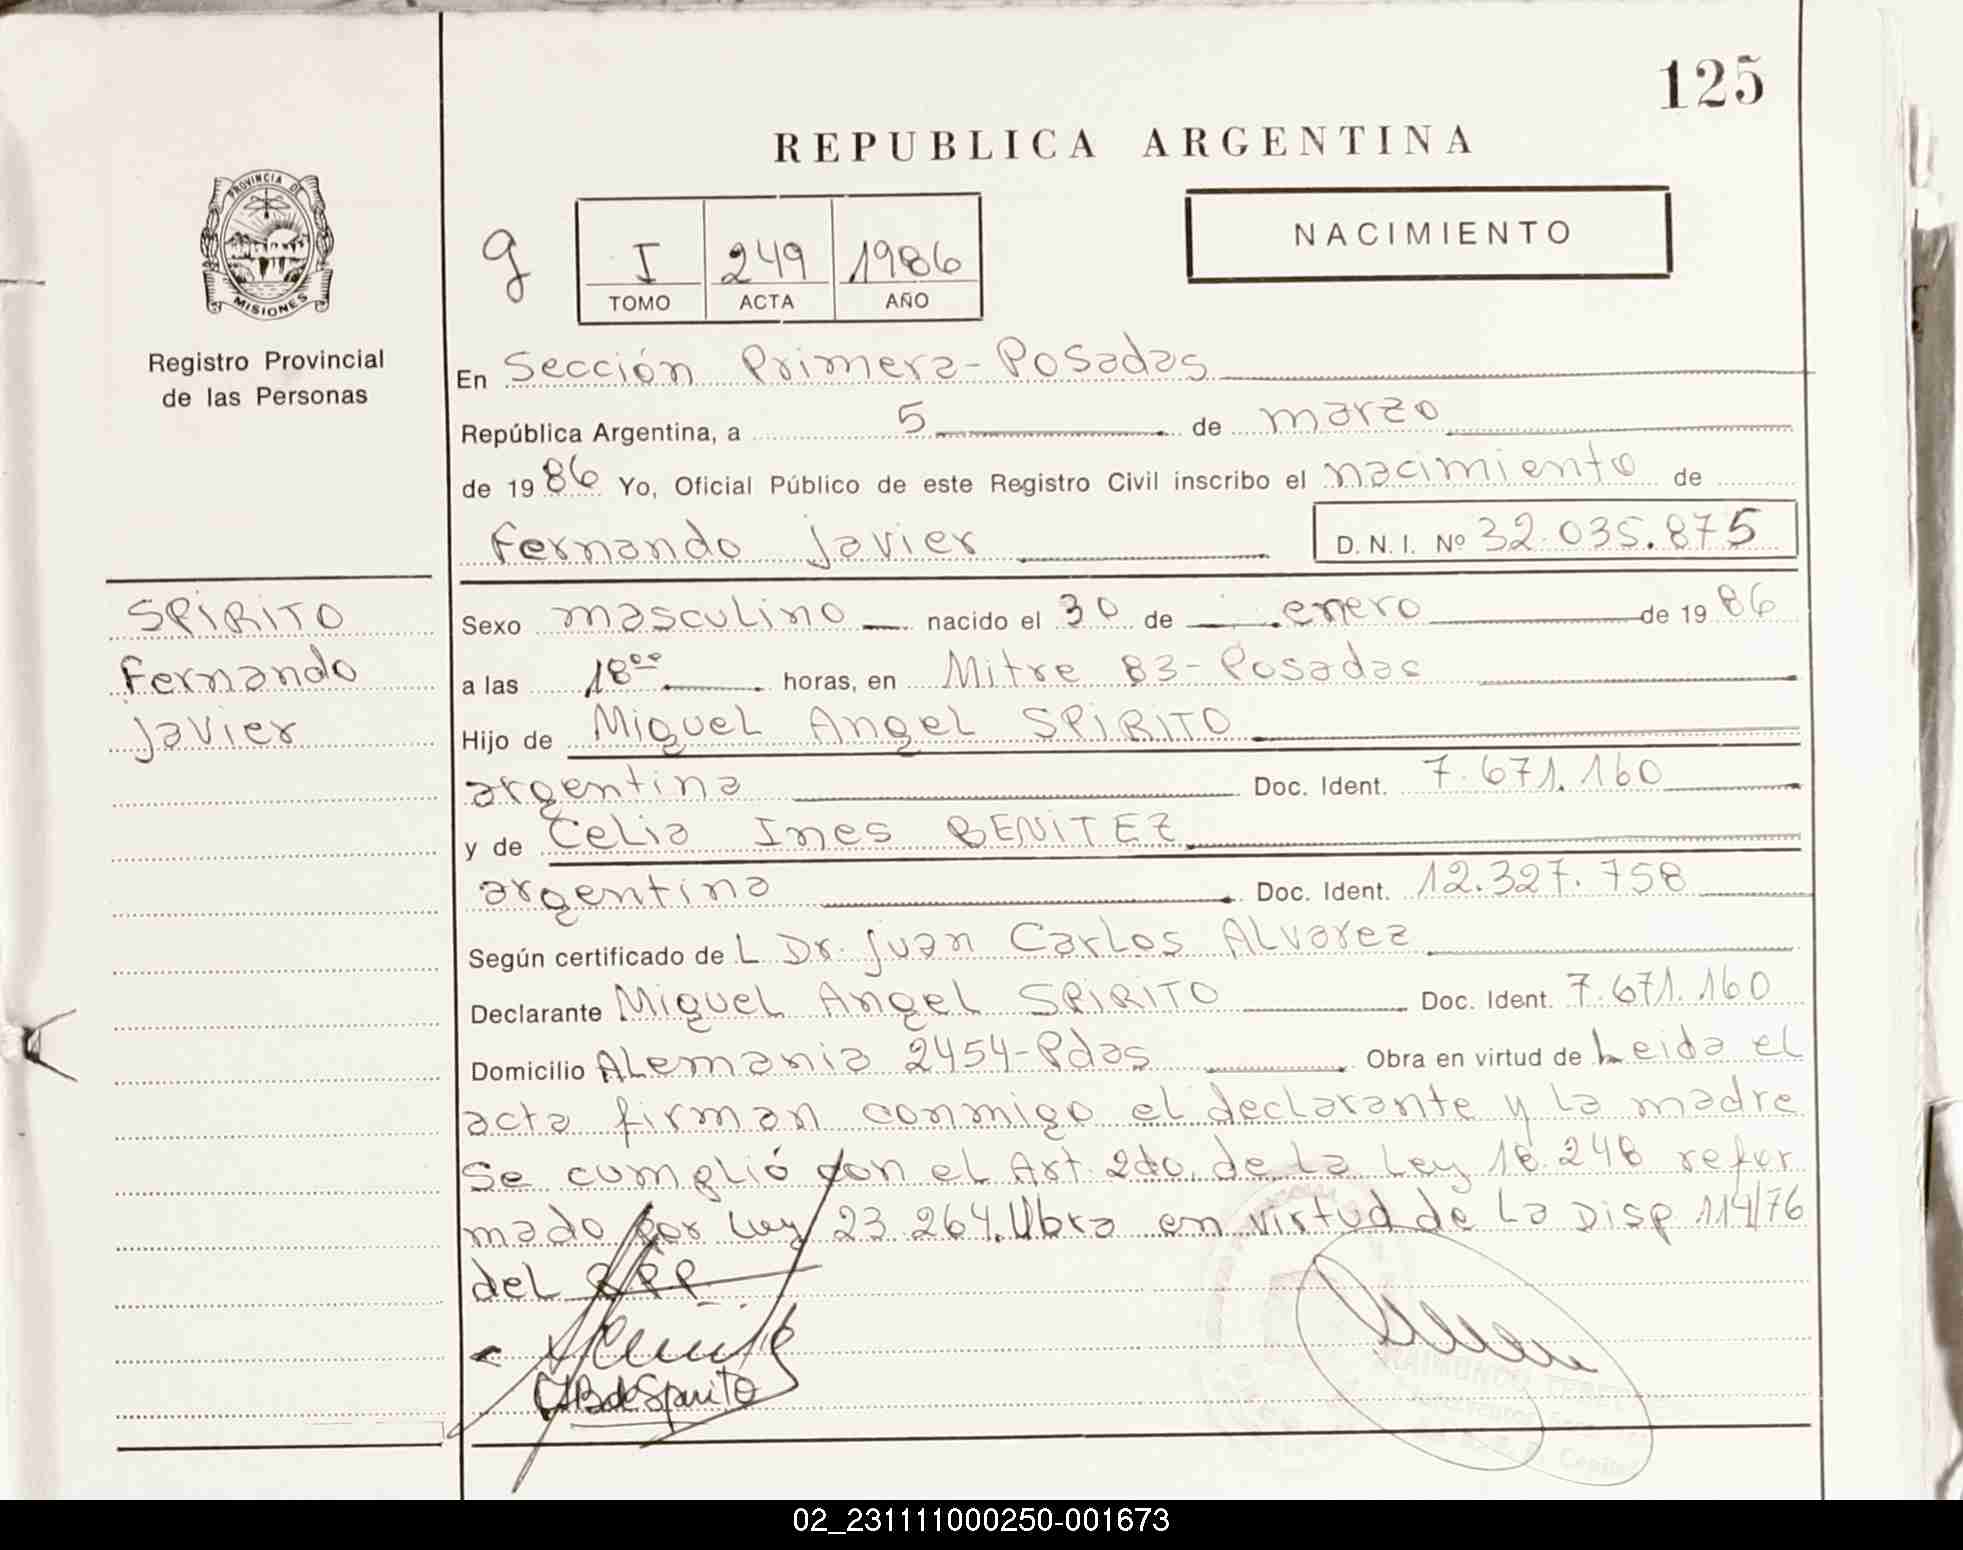 125
REPUBLICA ARGENTINA
PROVINCIA DE
MISIONES
Registro Provincial
de las Personas
g
I 249 1986
TOMO ACTA AÑO
NACIMIENTO
En Sección Primera - Posadas
República Argentina, a 5 de marzo
de 1986 Yo, Oficial Público de este Registro Civil inscribo el nacimiento de
Fernando Javier D.N.I. Nº 32.035.875
SPIRITO
Fernando
Javier
Sexo masculino nacido el 30 de enero de 1986
a las 18⁰⁰ horas, en Mitre 83 - Posadas
Hijo de Miguel Angel SPIRITO
argentina Doc. Ident. 7.671.160
y de Celia Ines BENITEZ
argentina Doc. Ident. 12.327.758
Según certificado de L Dr. Juan Carlos Alvarez
Declarante Miguel Angel SPIRITO Doc. Ident. 7.671.160
Domicilio Alemania 2454 - Pdas Obra en virtud de Leida el
acta firman conmigo el declarante y la madre
Se cumplió con el Art. 2do. de la Ley 18.248 refor
mado por Ley 23.264. Obra en virtud de la Disp 114/76
del RPP.
CIB de Spirito
RAIMUNDO
02_231111000250-001673